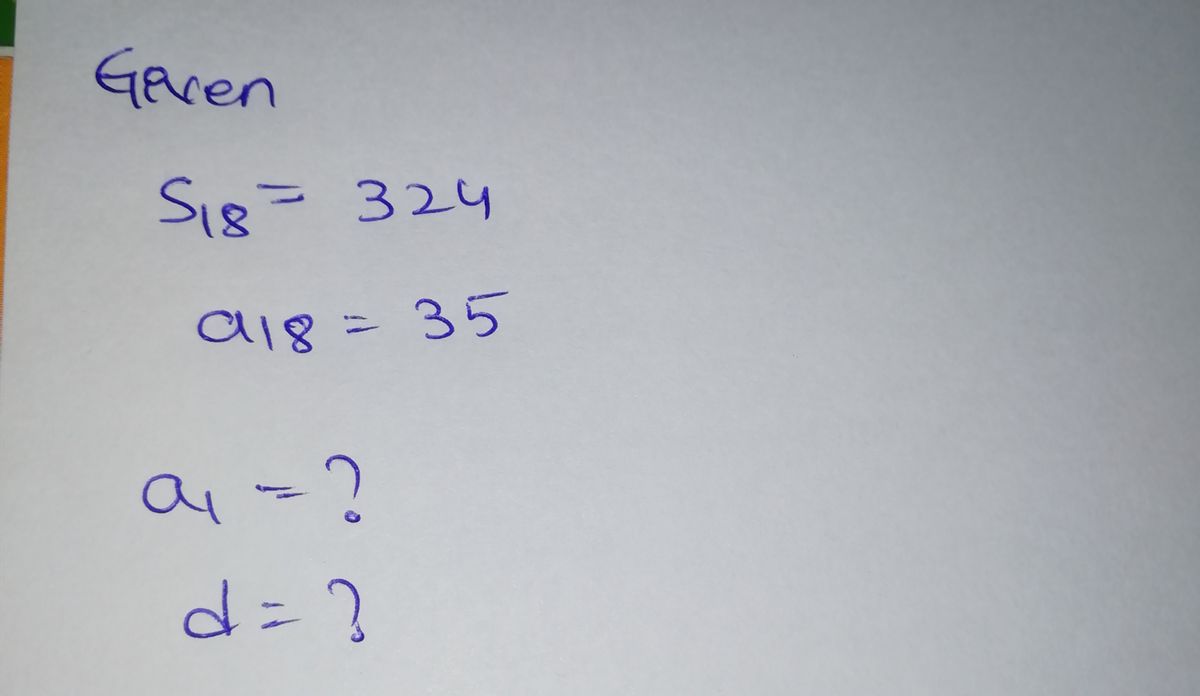 Given
S₁₈ = 324
a₁₈ = 35
a₁ = ?
d = ?